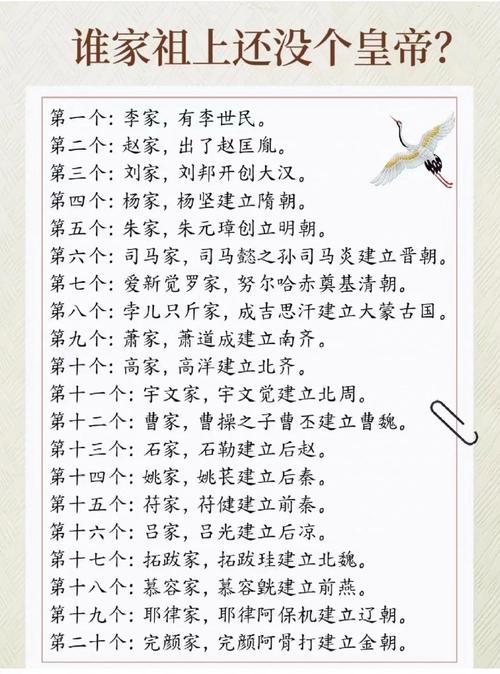 谁家祖上还没个皇帝?
第一个: 李家，有李世民。
第二个: 赵家，出了赵匡胤。
第三个: 刘家，刘邦开创大汉。
第四个: 杨家，杨坚建立隋朝。
第五个: 朱家，朱元璋创立明朝。
第六个: 司马家，司马懿之孙司马炎建立晋朝。
第七个: 爱新觉罗家，努尔哈赤奠基清朝。
第八个: 孛儿只斤家，成吉思汗建立大蒙古国。
第九个: 萧家，萧道成建立南齐。
第十个: 高家，高洋建立北齐。
第十一个: 宇文家，宇文觉建立北周。
第十二个: 曹家，曹操之子曹丕建立曹魏。
第十三个: 石家，石勒建立后赵。
第十四个: 姚家，姚苌建立后秦。
第十五个: 苻家，苻健建立前秦。
第十六个: 吕家，吕光建立后凉。
第十七个: 拓跋家，拓跋珪建立北魏。
第十八个: 慕容家，慕容皝建立前燕。
第十九个: 耶律家，耶律阿保机建立辽朝。
第二十个: 完颜家，完颜阿骨打建立金朝。